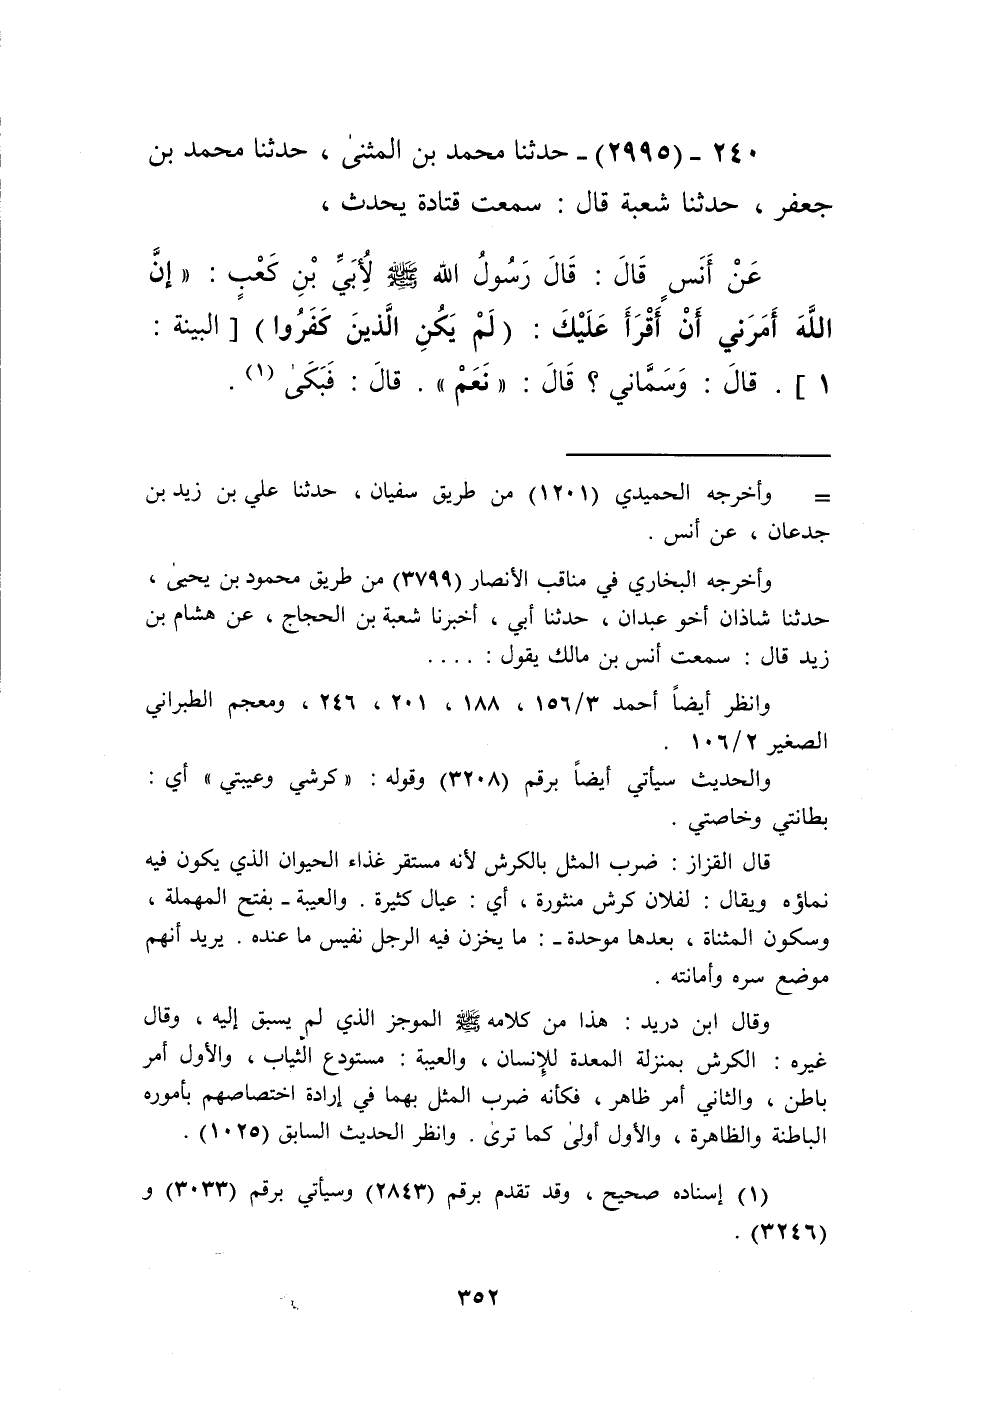 ٢٤٠ - (٢٩٩٥) - حدثنا محمد بن المثنىٰ ، حدثنا محمد بن
جعفر ، حدثنا شعبة قال : سمعت قتادة يحدث ،
عَنْ أَنَسٍ قَالَ : قَالَ رَسُولُ الله ﷺ لُأِبَيِّ بْنِ كَعْبٍ : « إنَّ
اللَّهَ أَمَرَني أَنْ أَقْرَأَ عَلَيْكَ : ( لَمْ يَكُنِ الَّذينَ كَفَرُوا ) [ البينة :
١ ] . قالَ : وَسَمَّاني ؟ قَالَ : « نَعَمْ » . قالَ : فَبَكَىٰ (١) .
= وأخرجه الحميدي (١٢٠١) من طريق سفيان ، حدثنا علي بن زيد بن
جدعان ، عن أنس .
وأخرجه البخاري في مناقب الأنصار (٣٧٩٩) من طريق محمود بن يحيىٰ ،
حدثنا شاذان أخو عبدان ، حدثنا أبي ، أخبرنا شعبة بن الحجاج ، عن هشام بن
زيد قال : سمعت أنس بن مالك يقول : ....
وانظر أيضاً أحمد ١٥٦/٣ ، ١٨٨ ، ٢٠١ ، ٢٤٦ ، ومعجم الطبراني
الصغير ١٠٦/٢ .
والحديث سيأتي أيضاً برقم (٣٢٠٨) وقوله : « كرشي وعيبتي » أي :
بطانتي وخاصتي .
قال القزاز : ضرب المثل بالكرش لأنه مستقر غذاء الحيوان الذي يكون فيه
نماؤه ويقال : لفلان كرش منثورة ، أي : عيال كثيرة . والعيبة - بفتح المهملة ،
وسكون المثناة ، بعدها موحدة - : ما يخزن فيه الرجل نفيس ما عنده . يريد أنهم
موضع سره وأمانته .
وقال ابن دريد : هذا من كلامه ﷺ الموجز الذي لم يسبق إليه ، وقال
غيره : الكرش بمنزلة المعدة للإنسان ، والعيبة : مستودع الثياب ، والأول أمر
باطن ، والثاني أمر ظاهر ، فكأنه ضرب المثل بهما في إرادة اختصاصهم بأموره
الباطنة والظاهرة ، والأول أولىٰ كما ترىٰ . وانظر الحديث السابق (١٠٢٥) .
(١) إسناده صحيح ، وقد تقدم برقم (٢٨٤٣) وسيأتي برقم (٣٠٣٣) و
(٣٢٤٦) .
٣٥٢